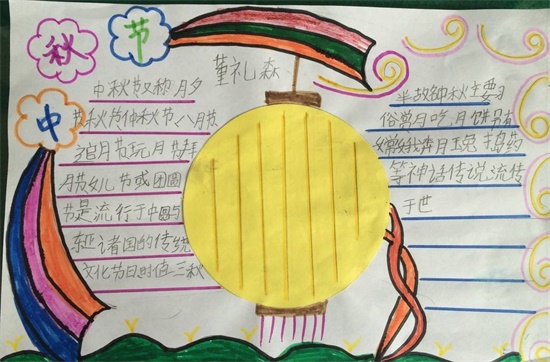 中
秋
节
董礼森
中秋节又称月夕
秋节仲秋节八月节
追月节玩月节拜
月节女儿节或团圆
节是流行于中国与
东亚诸国的传统
文化节日时值三秋
半故钟秋主要习
俗赏月吃月饼
嫦娥奔月玉兔捣药
等神话传说流传
于世